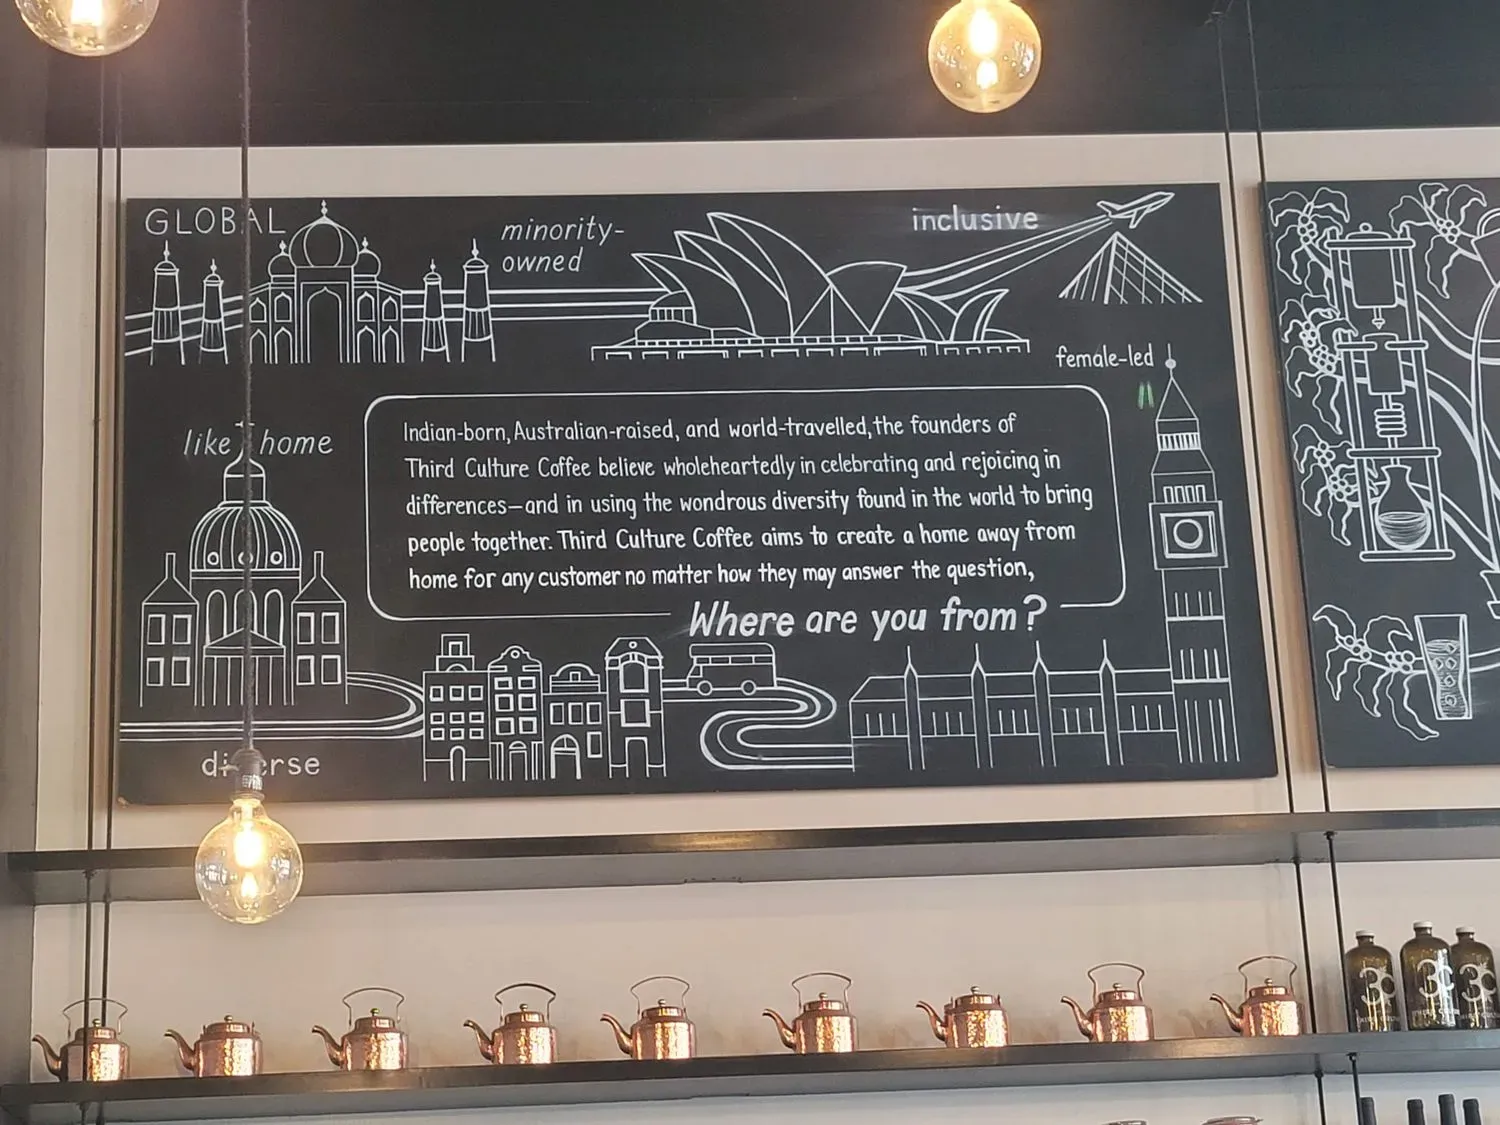 GLOBAL
minority-
owned
inclusive
female-led
like home
Indian-born, Australian-raised, and world-travelled, the founders of
Third Culture Coffee believe wholeheartedly in celebrating and rejoicing in
differences—and in using the wondrous diversity found in the world to bring
people together. Third Culture Coffee aims to create a home away from
home for any customer no matter how they may answer the question,
Where are you from?
diverse
3C
3C
3C